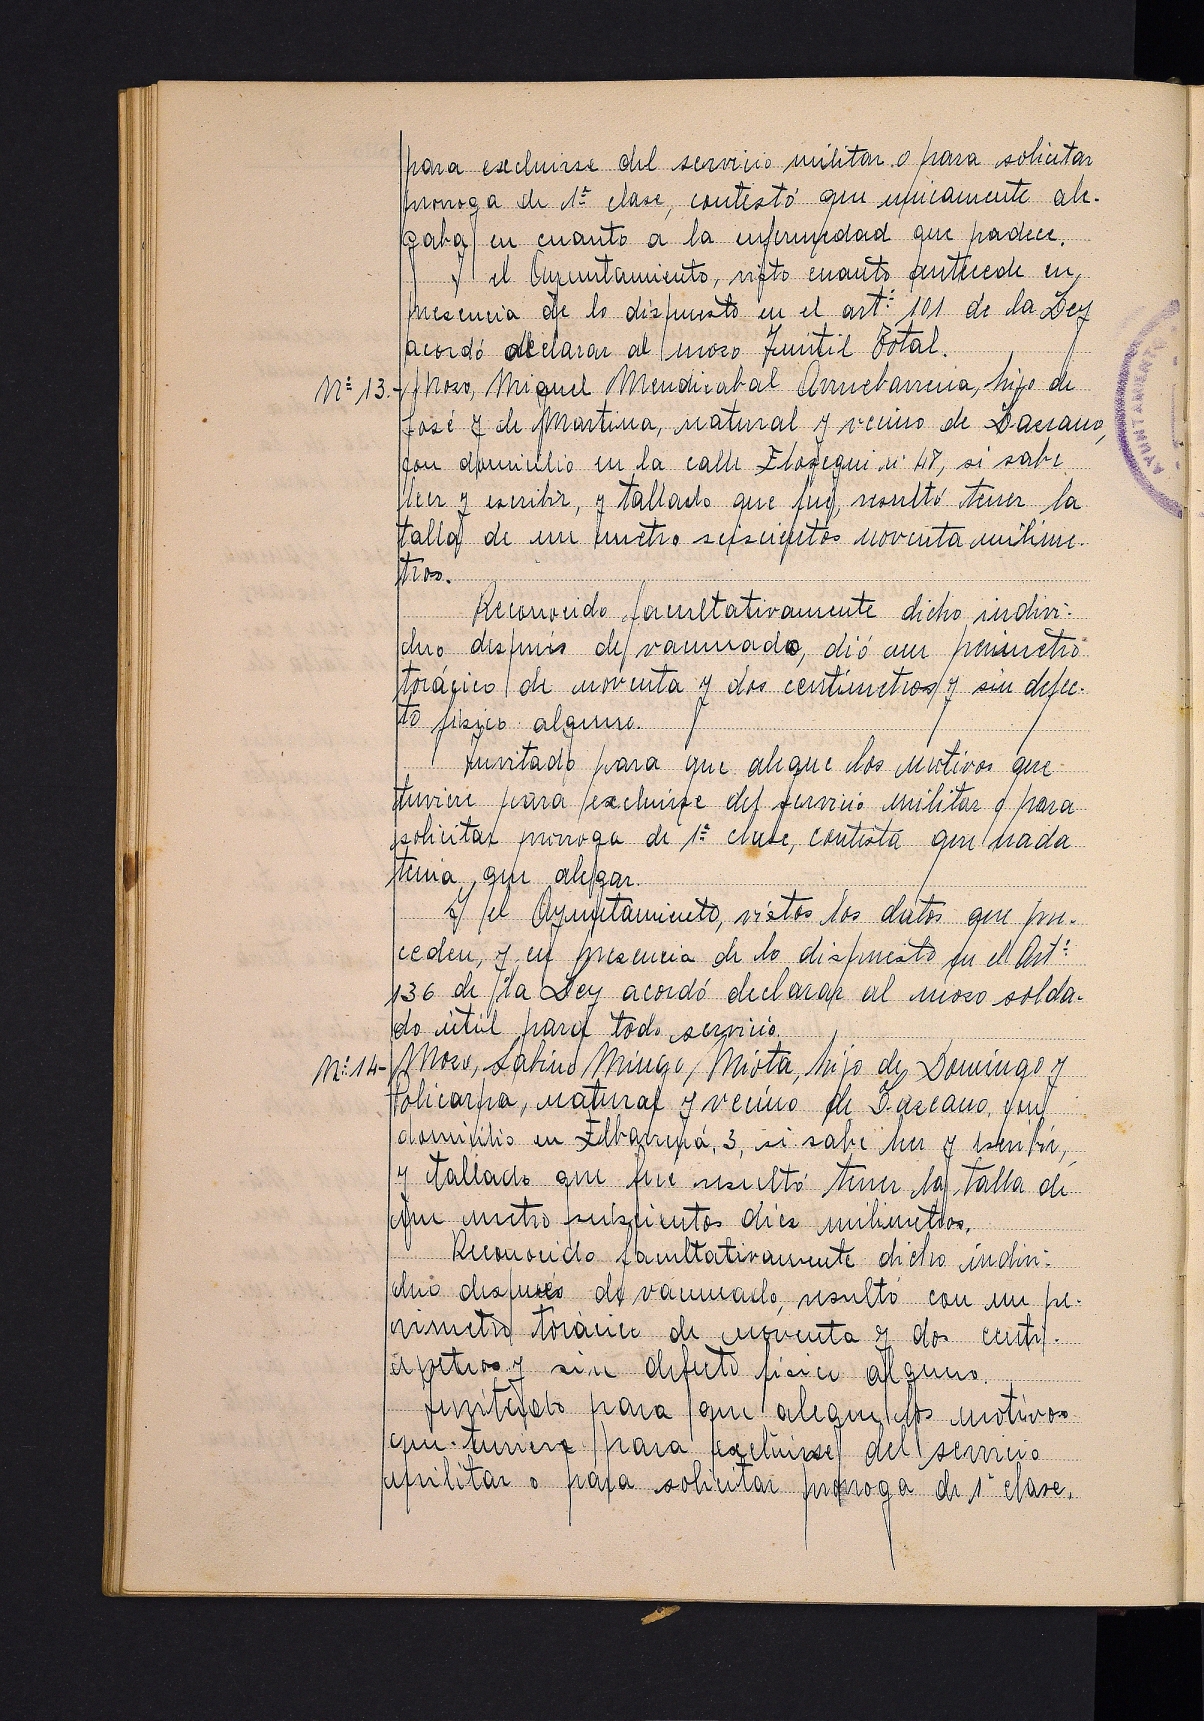 para excluirse del servicio militar o para solicitar
prorroga de 1ª clase, contestó que unicamente ale-
gaba en cuanto a la enfermedad que padece.
Y el Ayuntamiento, visto cuanto antecede en
presencia de lo dispuesto en el artº 101 de la Ley
acordó declarar al mozo Inútil Total.
Nº 13.- Mozo, Miguel Mendizabal Arruebarrena, hijo de
José y de Martina, natural y vecino de Lazcano,
con domicilio en la calle Elosegui nº 48, si sabe
leer y escribir, y tallado que fué, resultó tener la
talla de un metro seiscientos noventa milime-
tros.
Reconocido facultativamente dicho indivi-
duo después de vacunado, dió un perimetro
torácico de noventa y dos centimetros y sin defec-
to fisico alguno.
Invitado para que alegue los motivos que
tuviere para excluirse del servicio militar o para
solicitar prorroga de 1ª clase, contesta que nada
tenia que alegar.
Y el Ayuntamiento, vistos los datos que pre-
ceden, y en presencia de lo dispuesto en el Artº
136 de la Ley acordó declarar al mozo solda-
do útil para todo servicio.
Nº 14- Mozo, Sabino Mingo Miota, hijo de Domingo y
Policarpa, natural y vecino de Lazcano, con
domicilio en 3, si sabe leer y escribir,
y tallado que fue resultó tener la talla de
un metro seiscientos diez milimetros.
Reconocido facultativamente dicho indivi-
duo después de vacunado, resultó con un pe-
rimetro torácico de noventa y dos centi-
metros y sin defecto fisico alguno.
Invitado para que alegue los motivos
que tuviere para excluirse del servicio
militar o para solicitar prorroga de 1ª clase,
AYUNTAMIENTO